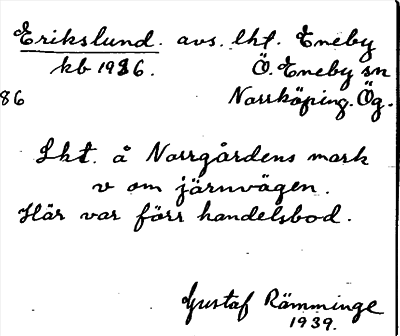 Erikslund. avs. lht. Eneby
kb 1936. Ö. Eneby sn
86 Norrköping. Ög.
Lht. å Norrgårdens mark
v om järnvägen.
Här var förr handelsbod.
Gustaf Rämminge
1939.